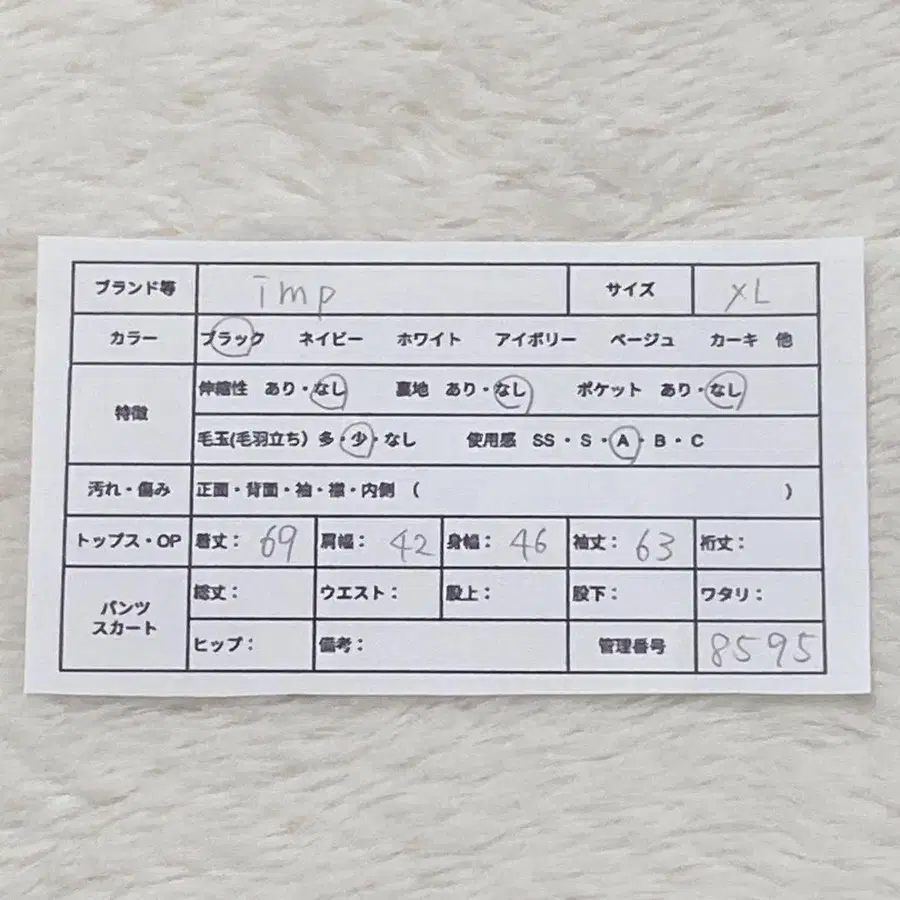 ブランド等 imp サイズ XL
カラー ブラック ネイビー ホワイト アイボリー ベージュ カーキ 他
特徴 伸縮性 あり・なし 裏地 あり・なし ポケット あり・なし
毛玉(毛羽立ち) 多・少・なし 使用感 SS・S・A・B・C
汚れ・傷み 正面・背面・袖・襟・内側 ( )
トップス・OP 着丈: 69 肩幅: 42 身幅: 46 袖丈: 63 裄丈:
パンツ スカート 総丈: ウエスト: 股上: 股下: ワタリ:
ヒップ: 備考: 管理番号 8595